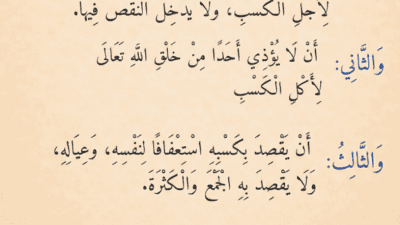 لِأَجْلِ الْكَسْبِ، وَلَا يدخِل النَّقْص فِيهَا.
وَالثَّانِي: أَنْ لَا يُؤْذِي أَحَدًا مِنْ خَلْقِ اللَّهِ تَعَالَى
لِأَكْلِ الْكَسْبِ
وَالثَّالِثُ: أَنْ يَقْصِدَ بِكَسْبِهِ اسْتِعْفَافًا لِنَفْسِهِ، وَعِيَالِهِ،
وَلَا يَقْصِدَ بِهِ الْجَمْعَ وَالْكَثْرَةَ.